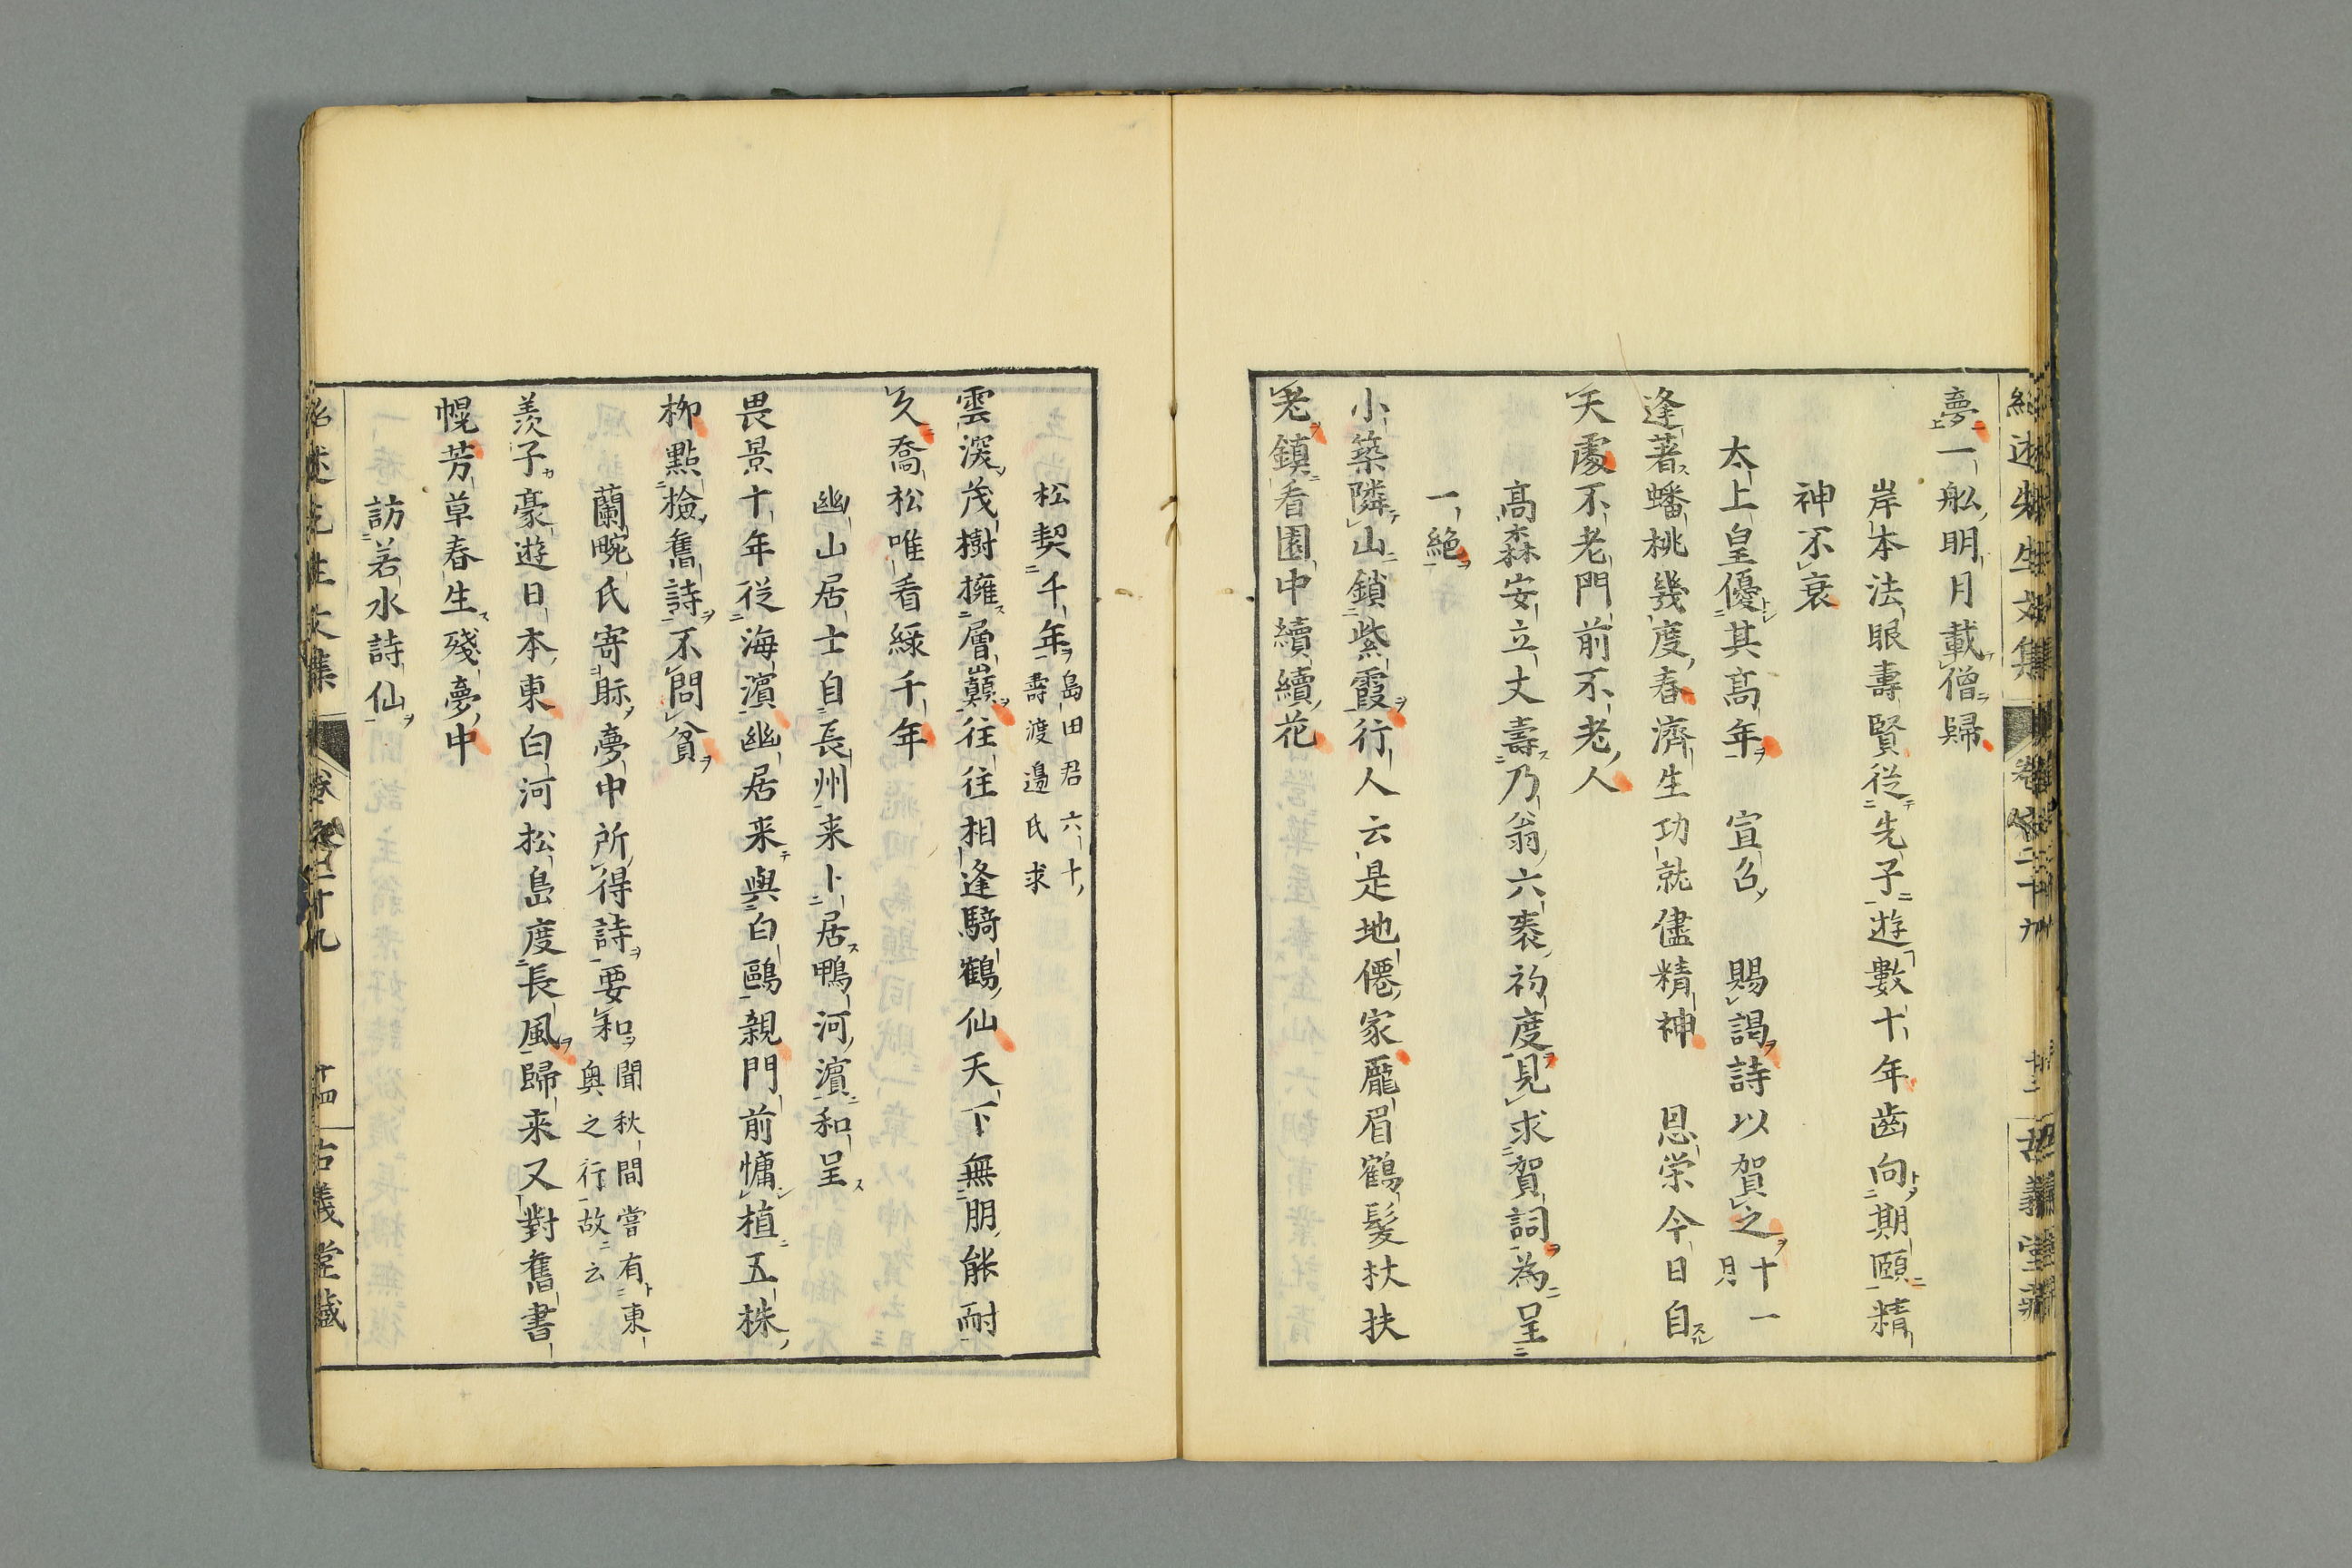 夢一舩明月載僧歸
岸本法眼壽賢從先子遊數十年齒向期頤精
神不衰
太上皇優其高年　宣召　賜謁詩以賀之十一月
逢著蟠桃幾度春濟生功就儘精神　恩榮今日自
天處不老門前不老人
高森安立丈壽乃翁六袠初度見求賀詞為呈
一絶
小築隣山鎖紫霞行人云是地僊家龐眉鶴髮杖扶
老鎮看園中續續花
卷之二十九
古義堂藏
松契千年島田君六十壽渡邉氏求
雲深茂樹擁層巔往往相逢騎鶴仙天下無朋能耐
久喬松唯看緑千年
幽山居士自長州来卜居鴨河濵和呈
畏景十年從海濵幽居来與白鷗親門前慵植五株
柳點檢舊詩不問貧
蘭畹氏寄眎夢中所得詩要和聞秋間嘗有東奥之行故云
羨子豪遊日本東白河松島度長風歸来又對舊書
幌芳草春生殘夢中
訪若水詩仙
紹述先生文集
卷之二十九
十四
古義堂藏